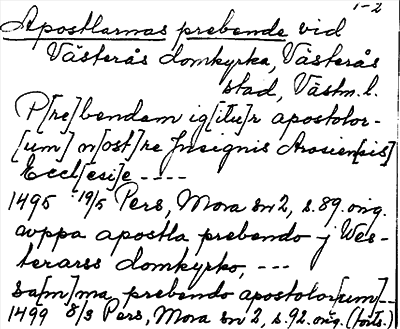 1-2
Apostlarnas prebende vid
Västerås domkyrka, Västerås
stad, Västm. l.
P[re]bendam ig[itu]r apostolor-
[um] n[ost]re Insignis Arosien[sis]
Eccl[esi]e ----
1495 19/5 Pers, Mora sn 2, s. 89. orig.
wppa apostla prebendo j Wes-
terarss domkyrko, ---
sa[m]ma prebendo apostolor[um]--
1499 8/3 Pers, Mora sn 2, s. 92. orig. (forts.)